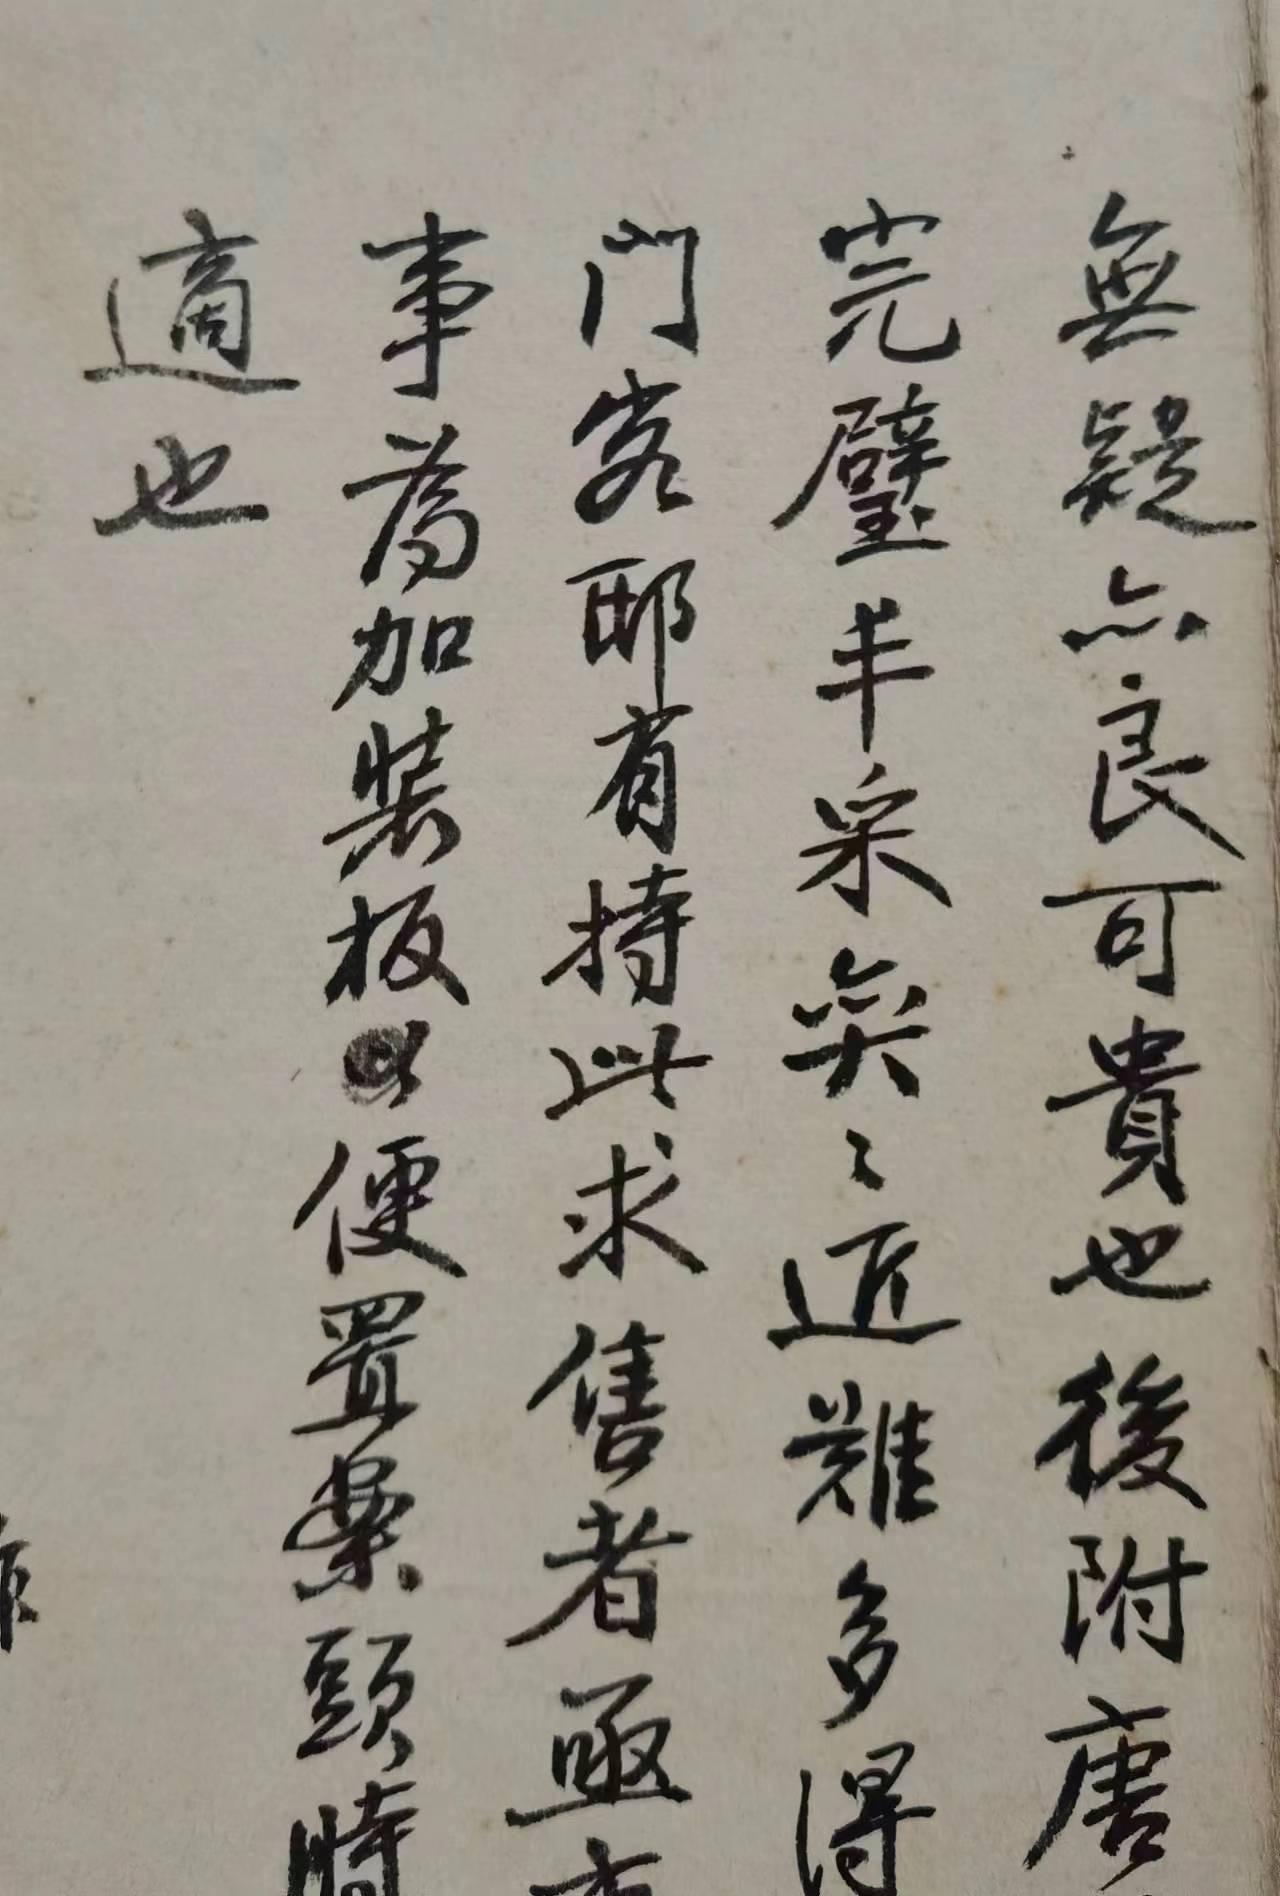 無疑亦良可貴也後附唐
完璧丰采奕〻近難多得
門客邸有持此求售者亟
事為加裝板以便置案頭時
適也